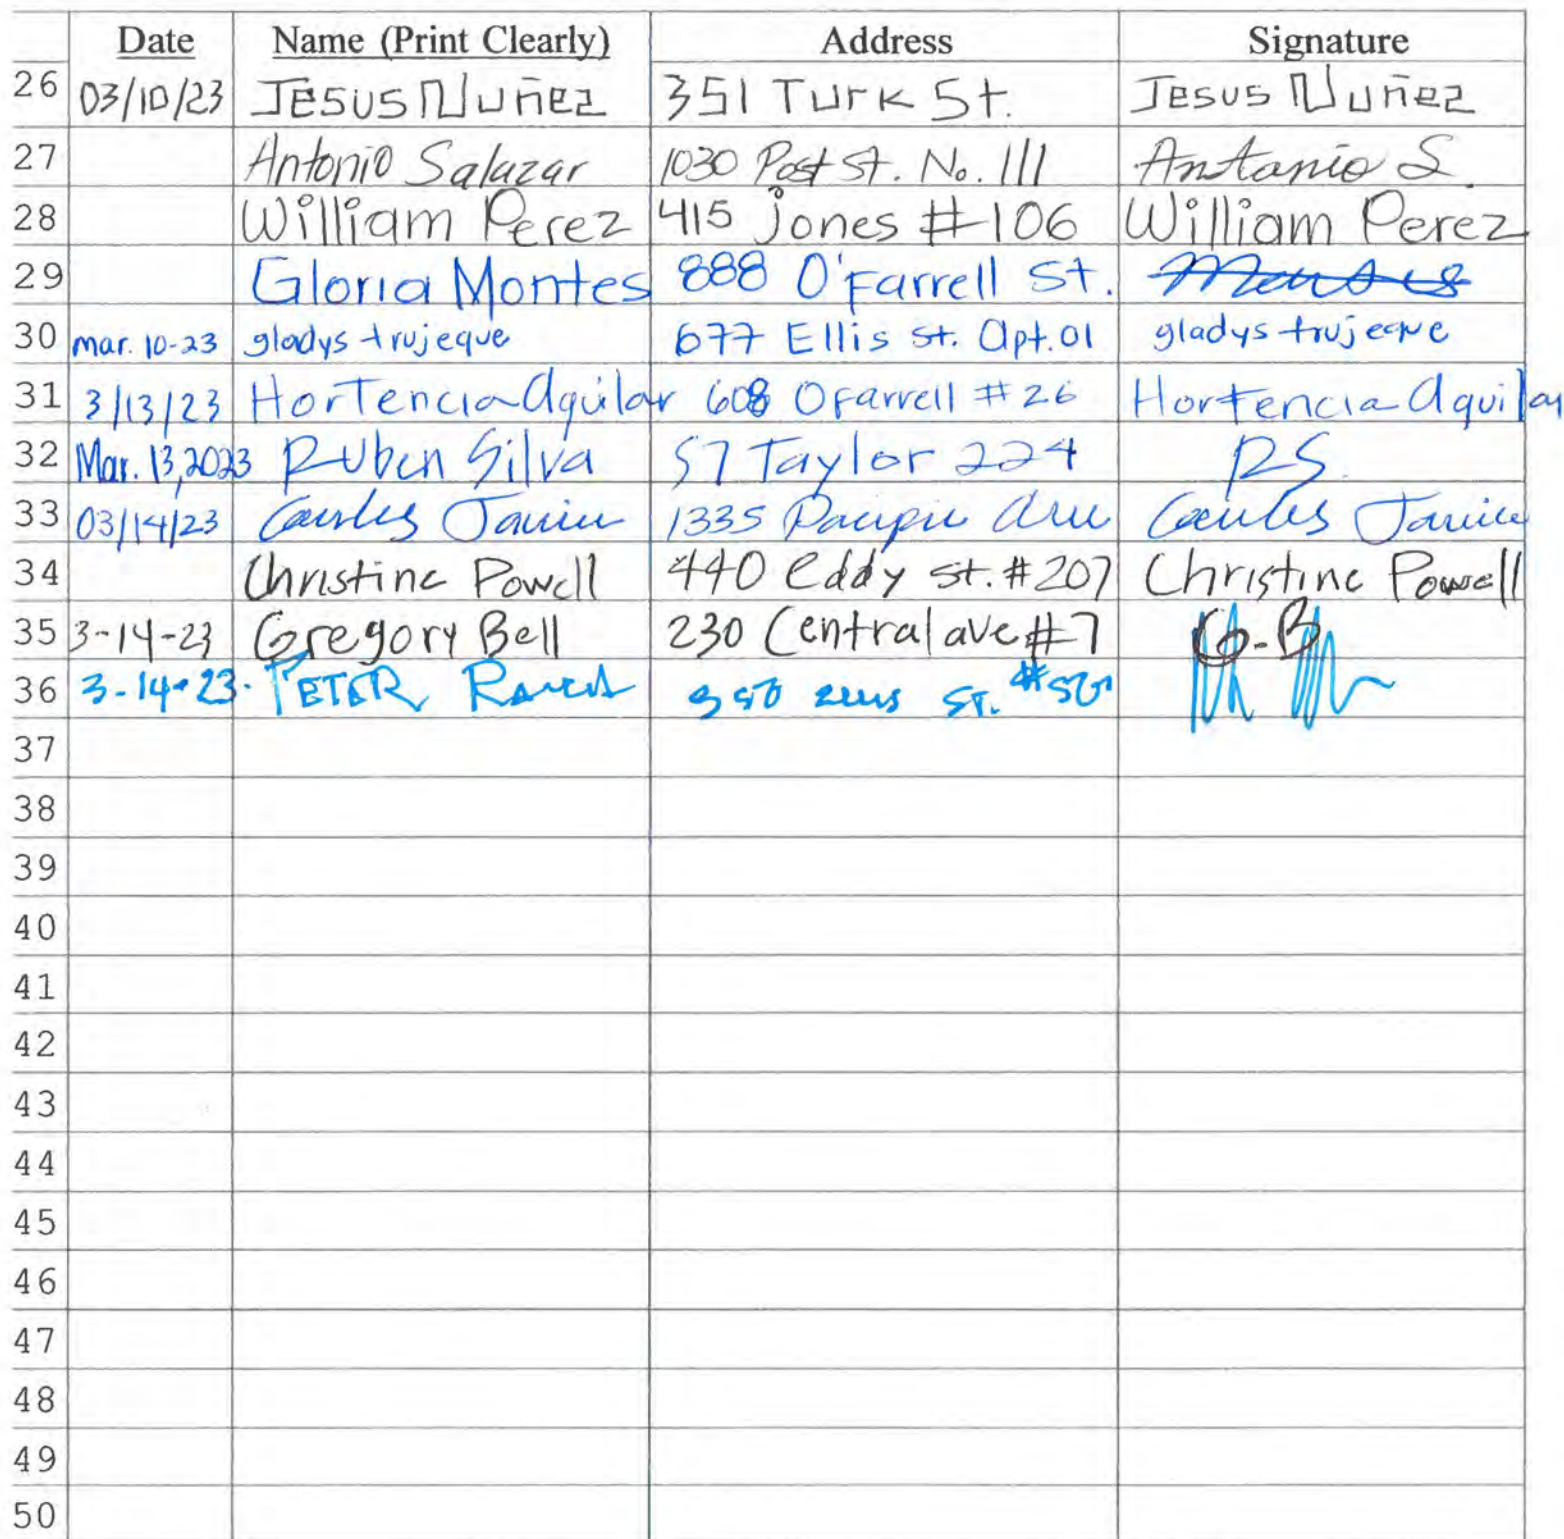 Date Name (Print Clearly) Address Signature
26 03/10/23 Jesus Nuñez 351 Turk St. Jesus Nuñez
27 Antonio Salazar 1030 Post St. No. 111 Antonio S.
28 William Perez 415 Jones #106 William Perez
29 Gloria Montes 888 O'Farrell St.
30 mar. 10-23 gladys trujeque 677 Ellis St. Apt. 01 gladys trujeque
31 3/13/23 Hortencia Aguilar 608 OFarrell #26 Hortencia Aguilar
32 Mar. 13, 2023 Ruben Silva 57 Taylor 224 RS.
33 03/14/23 1335
34 Christine Powell 440 Eddy St. #207 Christine Powell
35 3-14-23 Gregory Bell 230 Central ave #7 G.B
36 3-14-23. PETER ST.
37
38
39
40
41
42
43
44
45
46
47
48
49
50